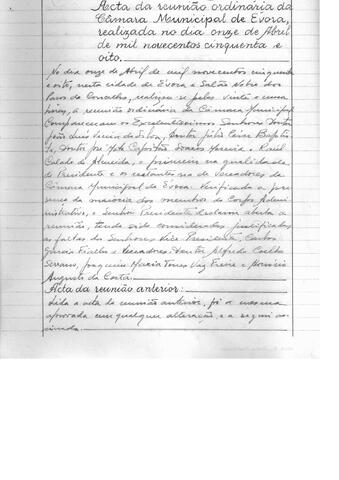 Acta da reunião ordinária da
Câmara Municipal de Évora,
realizada no dia onze de Abril
de mil novecentos cinquenta e
oito.
No dia onze de Abril de mil novecentos cinquenta
e oito, nesta cidade de Évora e Salão Nobre dos
Paços do Concelho, realizou-se pelas vinte e uma
horas, a reunião ordinária da Câmara Municipal.
Compareceram os Excelentíssimos Senhores Doutor
João Luis da Silva, Doutor Júlio César Baptis-
ta, Doutor José Soares e Raul
de Almeida, o primeiro na qualidade
de Presidente e os restantes na de Vereadores da
Câmara Municipal de Évora. Verificada a pre-
sença da maioria dos membros do Corpo Admi-
nistrativo, o Senhor Presidente declarou aberta a
reunião, tendo sido consideradas justificadas
as faltas dos Senhores Vice-Presidente, Carlos
Garcia Fialho e Vereadores: Doutor Alfredo Coelho
Serrano, Joaquim Maria Torres Vaz Freire e
Augusto da Costa.
Acta da reunião anterior:
Lida a acta da reunião anterior, foi a mesma
aprovada sem qualquer alteração, e a seguir as-
sinada.